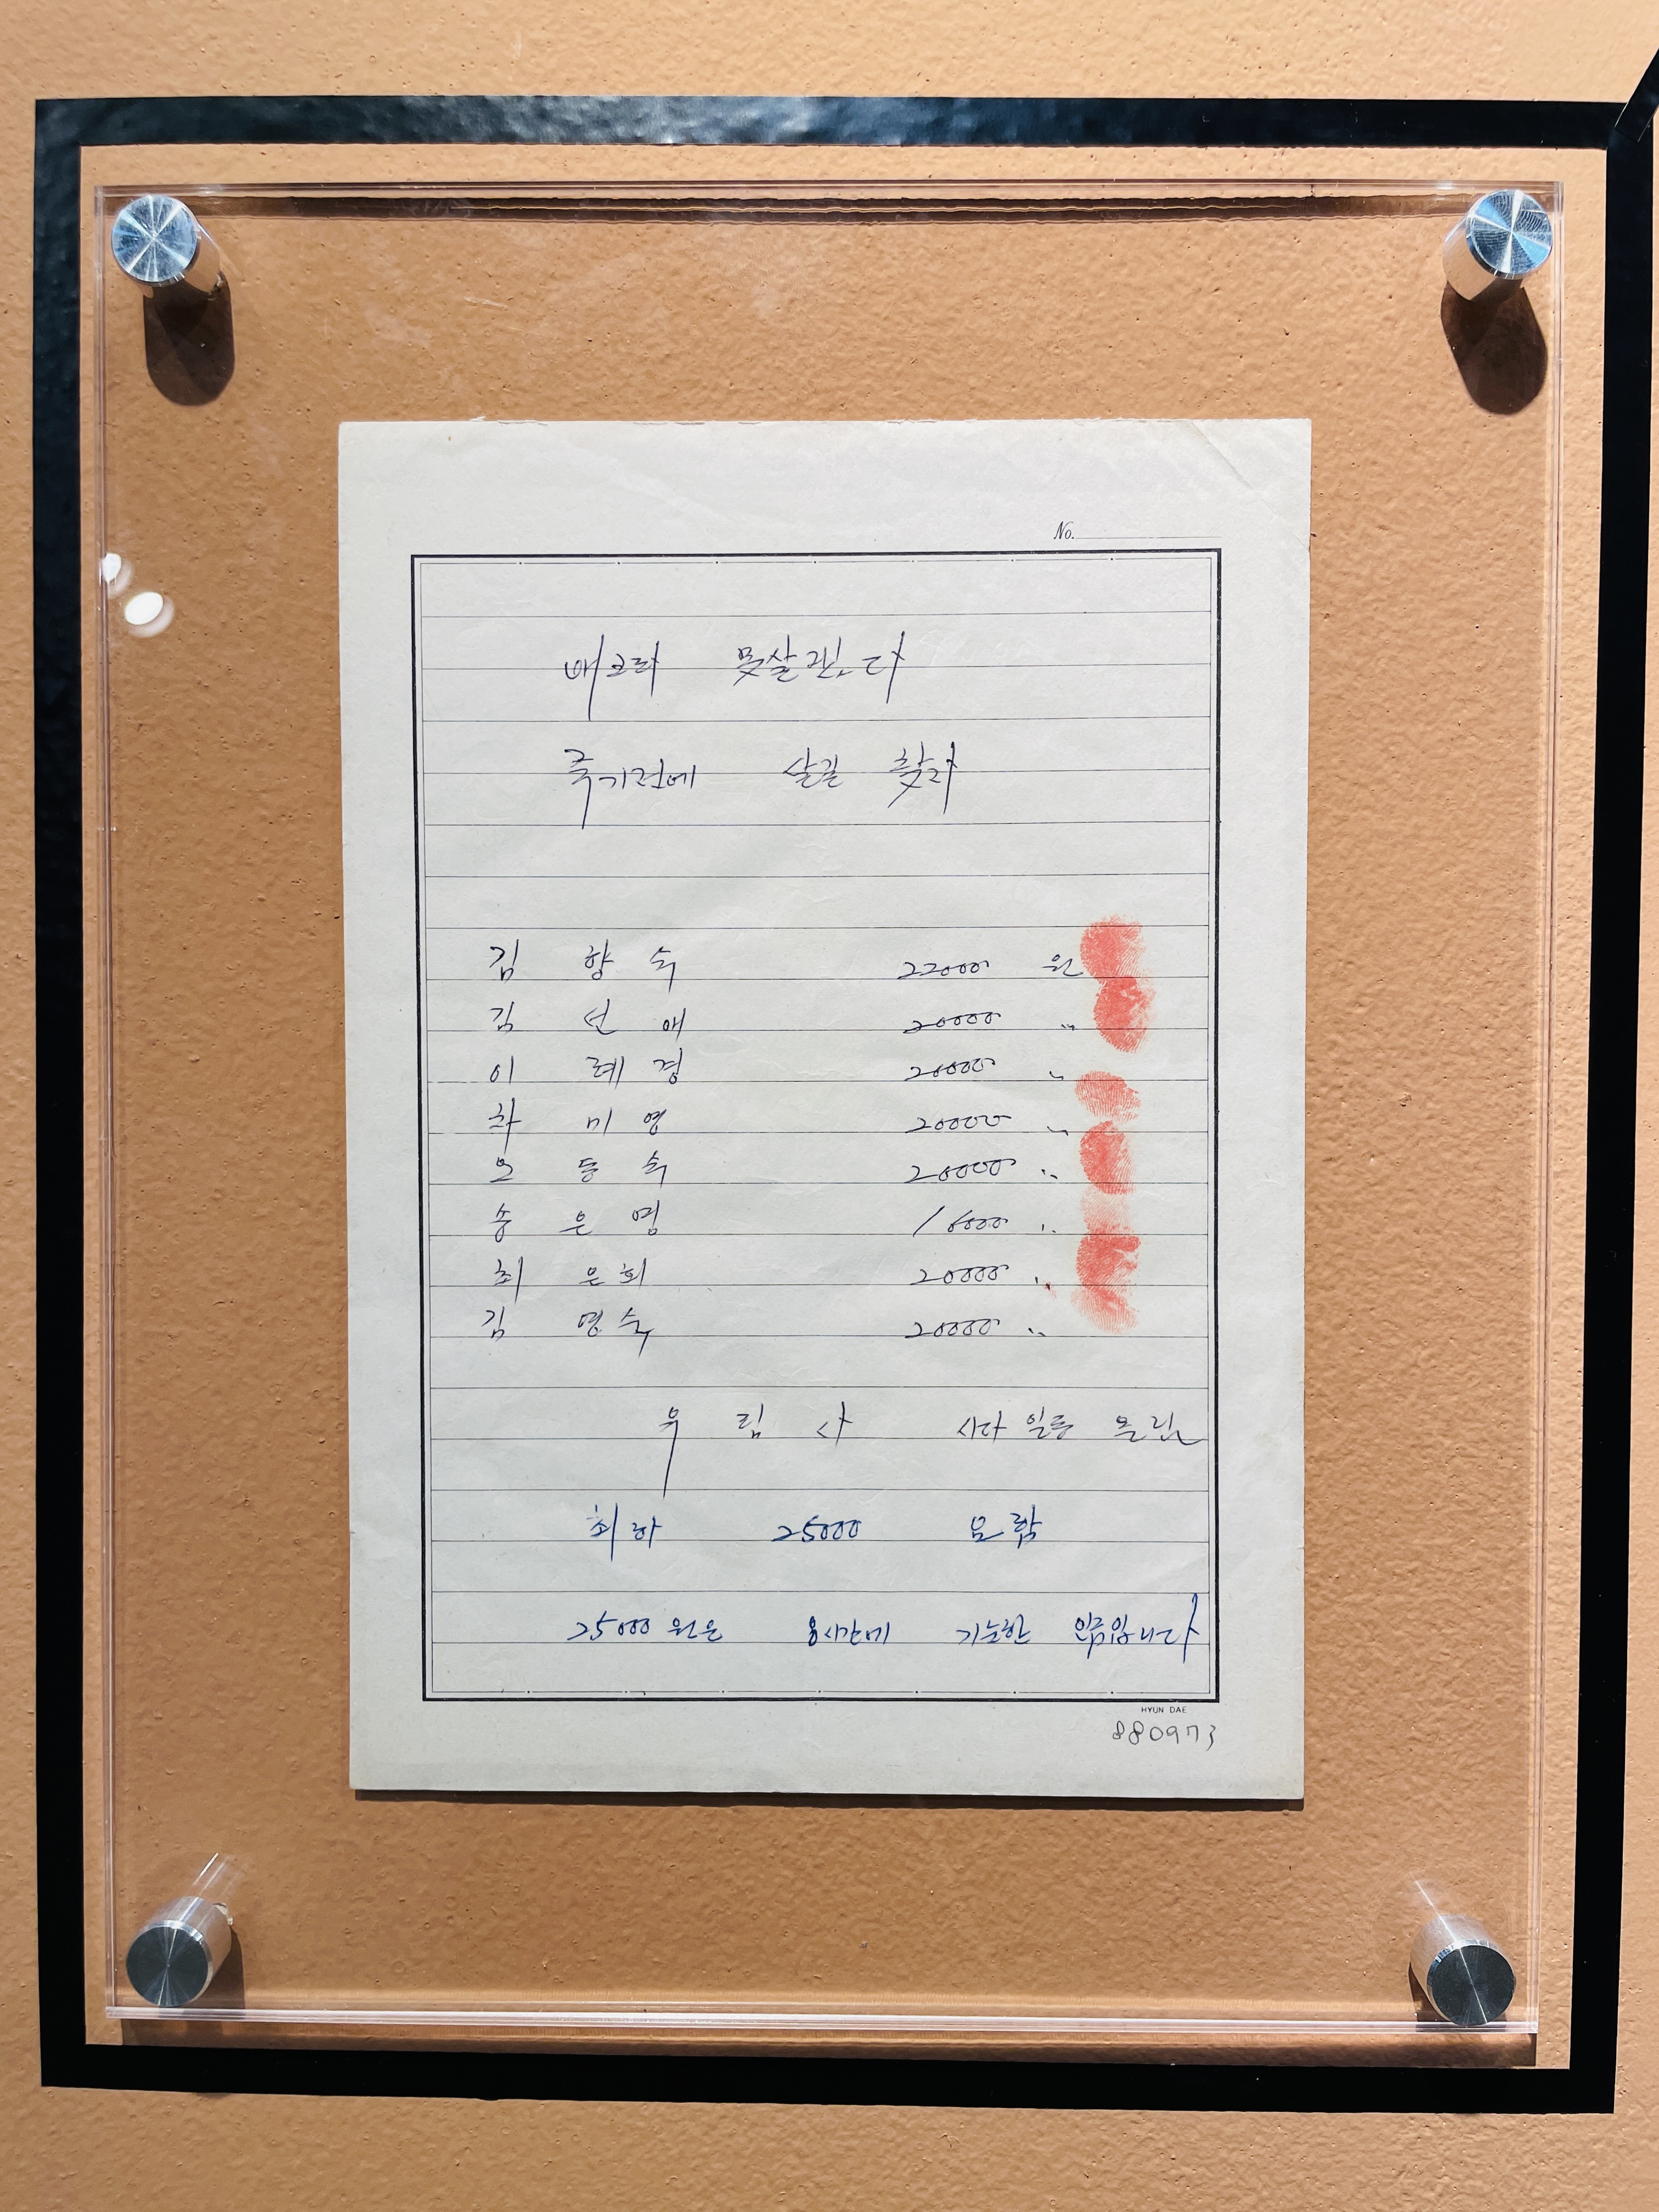 No.
배고파 못살겠다
죽기전에 살길 찾자
김 향 숙 22000 원
김 선 애 20000 〃
이 례 경 20000 〃
차 미 영 20000 〃
오 동 숙 20000 〃
송 은 영 16000 〃
최 은 희 20000 〃
김 명 숙 20000 〃
유 림 사 시다 일동 올림
최하 25000 요함
25000 원은 8시간제 기준한 임금입니다
HYUN DAE
880973